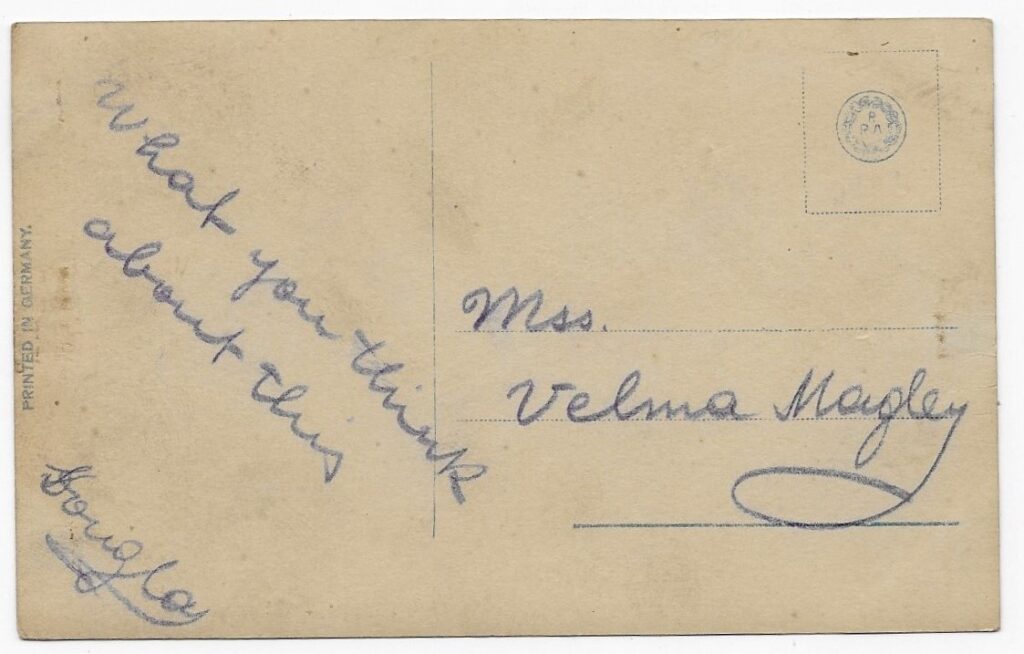 What you think
about this
Dougla
PRINTED IN GERMANY.
Mss.
Velma Magley